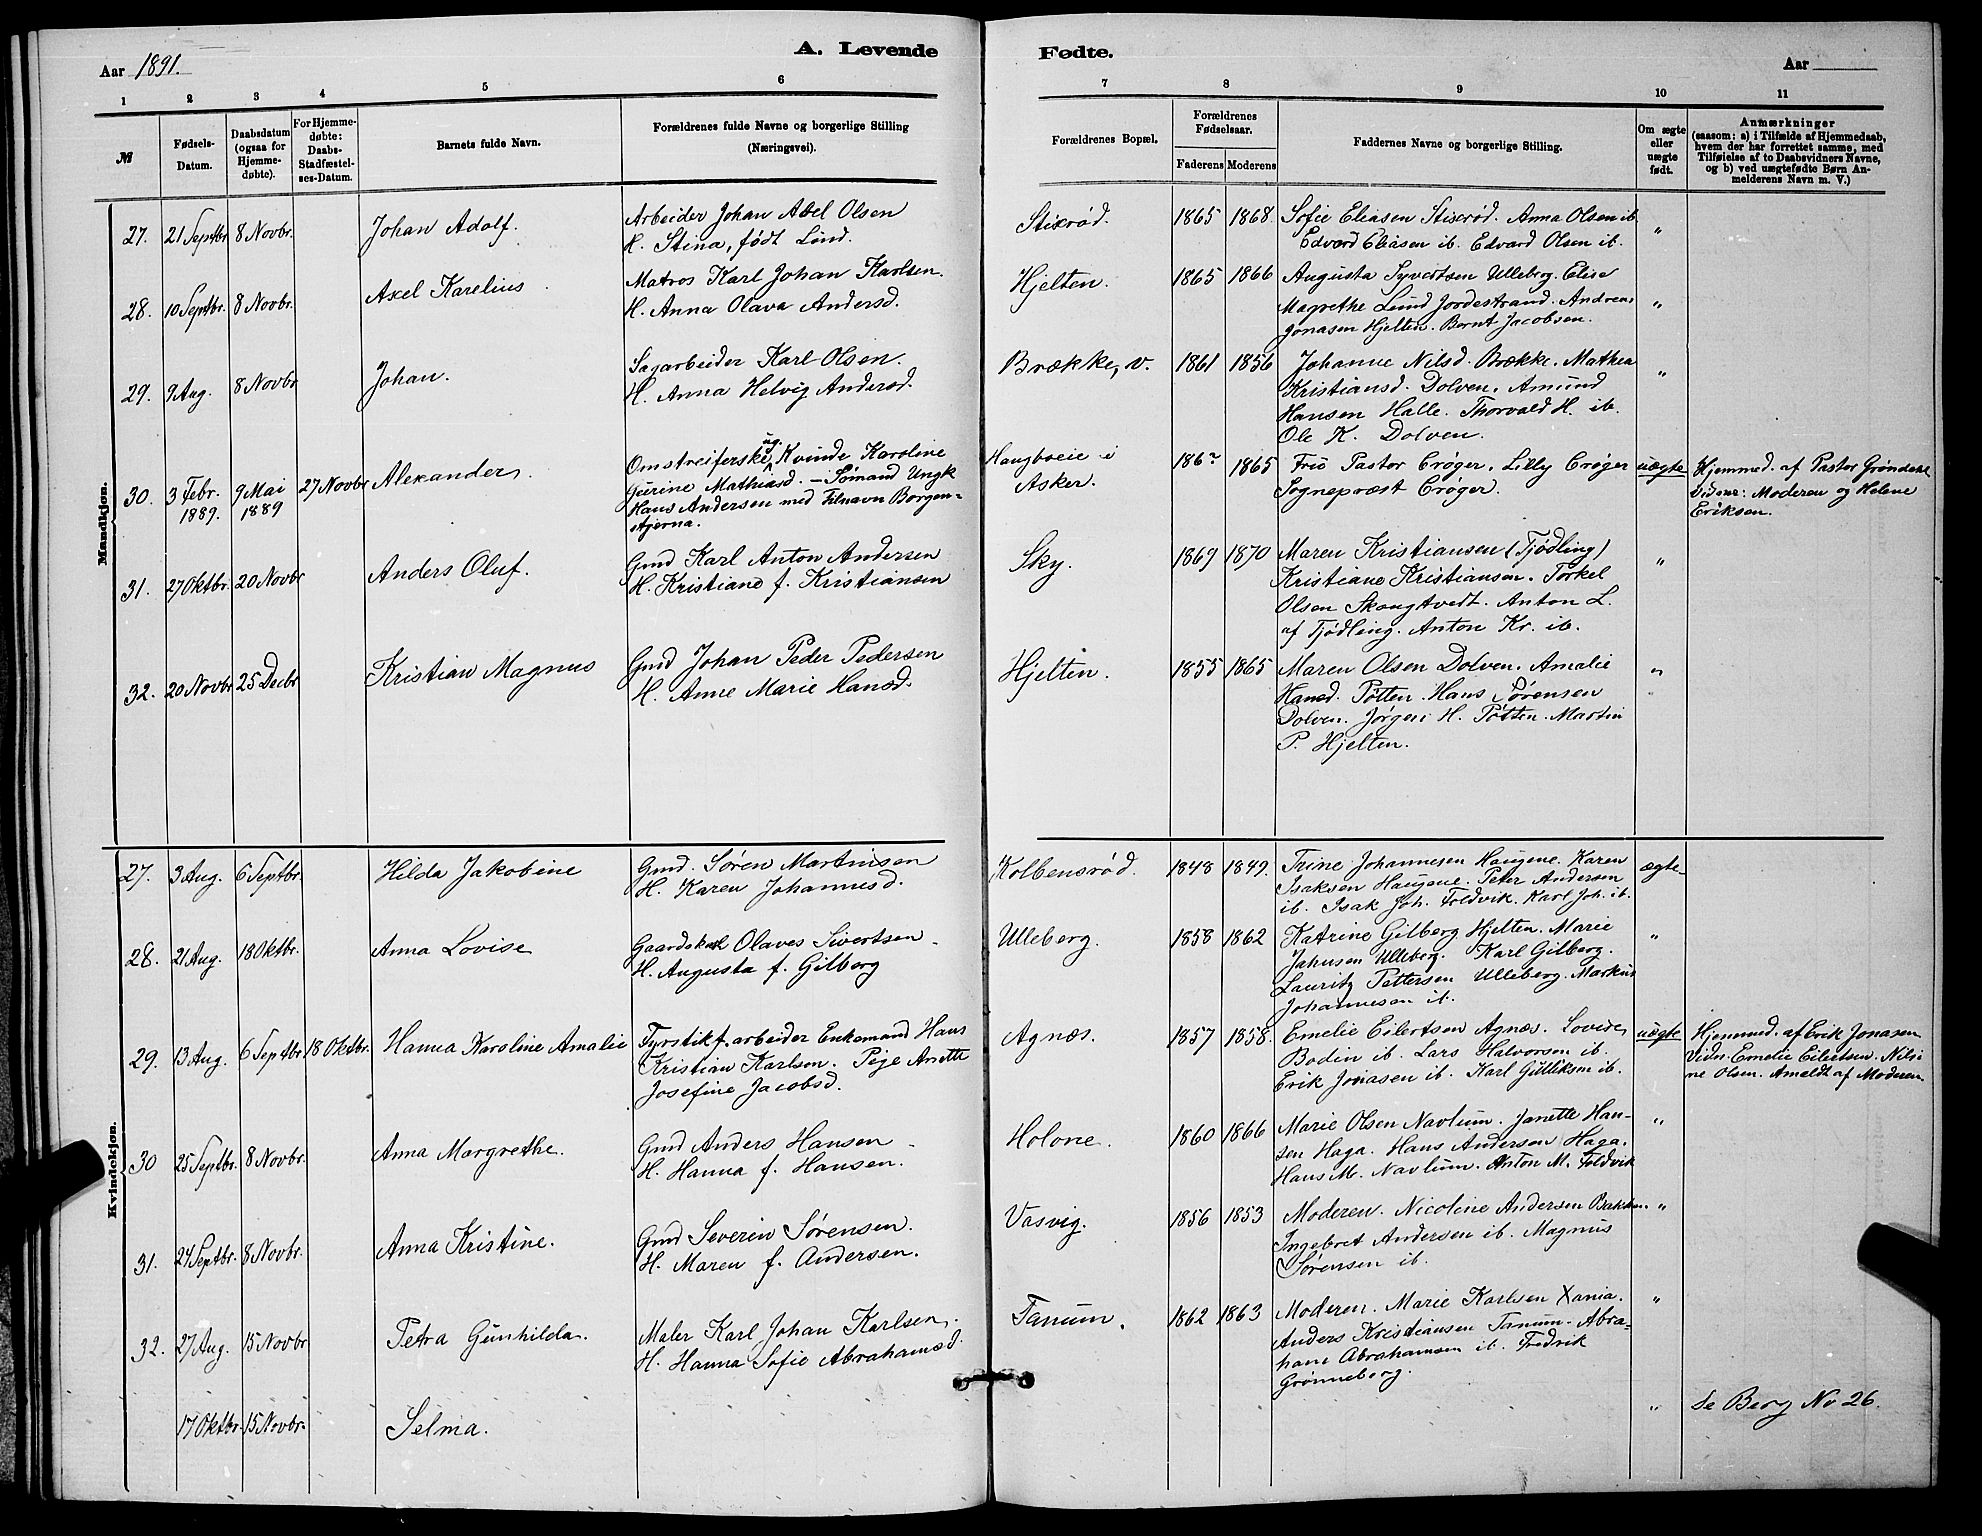 A. Levende
Aar 1891.
1 2 3 4 5 6
№
Fødsels-
Datum.
Daabsdatum
(ogsaa for
Hjemme-
døbte).
For Hjemme-
døbte:
Daabs-
Stadfæstel-
ses-Datum.
Barnets fulde Navn.
Forældrenes fulde Navne og borgerlige Stilling
(Næringsvei).
Fødte.
Aar
7 8 9 10 11
Forældrenes Bopæl.
Forældrenes
Fødselsaar.
Faderens Moderens
Faddernes Navne og borgerlige Stilling.
Om ægte
eller
uægte
født.
Anmærkninger
(saasom: a) i Tilfælde af Hjemmedaab,
hvem der har forrettet samme, med
Tilføielse af to Daabsvidners Navne,
og b) ved uægtefødte Børn An-
melderens Navn m. V.)
Mandkjøn.
27. 21 Septbr. 8 Novbr. Johan Adolf.
Arbeider Johan Axel Olsen
H. Stina, født Lind.
Stixrød. 1865 1868.
Sofie Eliasen Stixrød. Anna Olsen ib
Edvard Eliasen ib. Edvard Olsen ib. "
28. 10 Septbr. 8 Novbr. Axel Karelius.
Matros Karl Johan Karlsen.
H. Anna Olava Andersd.
Hjelten. 1865 1866
Augusta Syvertsen Ulleberg. Elise
Magrethe Lund Jordestrand. Andreas
Jonasen Hjelten. Bernt Jacobsen. "
29. 9 Aug. 8 Novbr Johan.
Sagarbeider Karl Olsen.
H. Anna Helvig Andersd.
Brække, v. 1861 1856
Johanne Nilsd. Brække. Mathea
Kristiansd. Dolven. Amund
Hansen Halle. Thorvald H. ib.
Ole K. Dolven. "
30. 3 Febr. 1889. 9 Mai 1889 27 Novbr Alexander.
Omstreiferske, ug. Kvinde Karoline
Gurine Mathiasd. – Sømand Ungk
Hans Andersen med Tilnavn Borgen-
stjerna.
Haugbraeie i
Asker. 1865
Fru Pastor Crøger. Lilly Crøger
Sognepræst Crøger. uægte
Hjemmed. af Pastor Grøndahl
Vidner: Moderen og Helene
Eriksen.
31. 27 Oktbr. 20 Novbr Anders Oluf.
Gmd Karl Anton Andersen
H. Kristiane f. Kristiansen
Sky. 1869 1870
Maren Kristiansen (Tjødling)
Kristiane Kristiansen. Torkel
Olsen Skougtvedt. Anton L.
af Tjødling. Anton Kr. ib. "
32. 20 Novbr 25 Decbr Kristian Magnus
Gmd Johan Peder Pedersen
H. Anne Marie Hansd.
Hjelten. 1855 1865
Maren Olsen Dolven. Amalie
Hansd. Pøtten. Hans Sørensen
Dolven. Jørgen H. Pøtten. Martin
P. Hjelten. "
Kvindekjøn.
27. 3 Aug. 6 Septbr. Hilda Jakobine
Gmd. Søren Martinsen
H. Karen Johannesd.
Kolbensrød. 1848 1849.
Trine Johannesen Haugene. Karen
Isaksen Haugene. Peter Andersen
ib. Isak Joh. Foldvik. Karl Joh. ib. ægte
28. 21 Aug. 18 Oktbr. Anna Lovise
Gaardsk. Olaves Sivertsen
H. Augusta f. Gilberg
Ulleberg. 1858 1862
Katrine Gilberg Hjelten. Marie
Jahnsen Ulleberg. Karl Gilberg.
Lauritz Pettersen Ulleberg. Markus
Johannesen ib. "
29. 13 Aug. 6 Septbr 18 Oktbr. Hanna Karoline Amalie
Fyrstikf. arbeider Enkemand Hans
Kristian Karlsen. Pige Anette
Josefine Jacobsd.
Agnæs. 1857 1858.
Emelie Eilertsen Agnæs. Lovise
Bodin ib. Lars Halvorsen ib.
Erik Jonasen ib. Karl Gulliksen ib. uægte
Hjemmed. af Erik Jonasen
Vidn. Emelie Eilertsen. Nilsi-
ne Olsen. Anmeldt af Moderen.
30 25 Septbr. 8 Novbr. Anna Margrethe.
Gmd Anders Hansen
H. Hanna f. Hansen.
Holone. 1860 1866
Marie Olsen Navlum. Janette Han-
sen Haga. Hans Andersen Haga.
Hans M. Navlum. Anton M. Foldvik "
31. 24 Septbr. 8 Novbr. Anna Kristine.
Gmd Severin Sørensen.
H. Maren f. Andersen.
Vasvig. 1856 1853
Moderen. Nicoline Andersen Bakken.
Ingebret Andersen ib. Magnus
Sørensen ib. "
32. 27 Aug. 15 Novbr Petra Gunhilda.
Maler Karl Johan Karlsen.
H. Hanna Sofie Abrahamsd.
Tanum. 1862 1863
Moderen. Marie Karlsen Xania.
Anders Kristiansen Tanum. Abra-
ham Abrahamsen ib. Fredrik
Grønneberg. "
17 Oktbr. 15 Novbr. Selma. " Se Berg No 26.